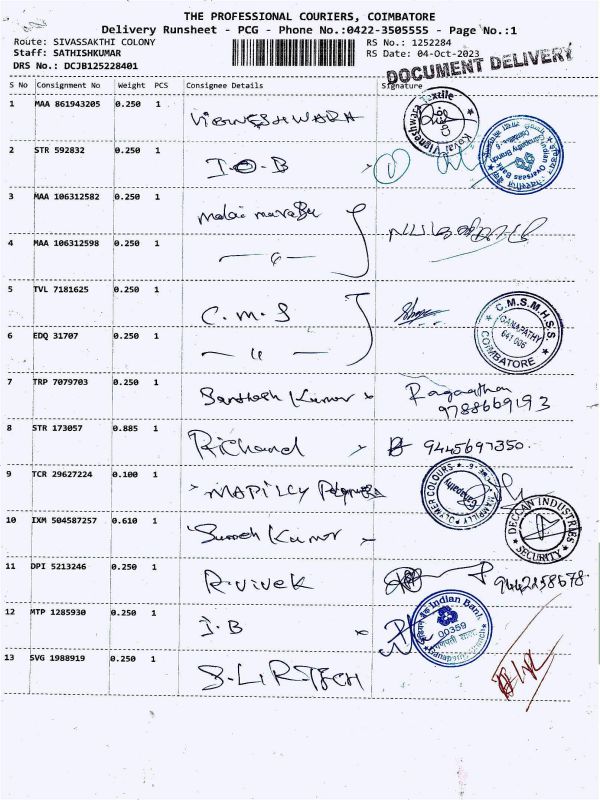 THE PROFESSIONAL COURIERS, COIMBATORE
Delivery Runsheet - PCG - Phone No.:0422-3505555 - Page No.:1
Route: SIVASSAKTHI COLONY RS No.: 1252284
Staff: SATHISHKUMAR RS Date: 04-Oct-2023
DRS No.: DCJB125228401
DOCUMENT DELIVERY
S No Consignment No Weight PCS Consignee Details Signature
1 MAA 861943205 0.250 1 VIGNESHWARA
Kovai Vigneshwara Textile
2 STR 592832 0.250 1 I.O.B
Indian Overseas Bank
3 MAA 106312582 0.250 1 malai murasu
4 MAA 106312598 0.250 1 — " —
5 TVL 7181625 0.250 1 C.M.S
C.M.S.M.H.S.S.
GANAPATHY
641 006
COIMBATORE
6 EDQ 31707 0.250 1 — " —
7 TRP 7079703 0.250 1 Santhosh Kumar
9788669193
8 STR 173057 0.885 1 Richand 9445697350.
9 TCR 29627224 0.100 1 MAPILLY
10 IXM 504587257 0.610 1 Suresh Kumar
DECCAN INDUSTRIES
SECURITY
11 DPI 5213246 0.250 1 R.vivek 9442258678.
12 MTP 1285930 0.250 1 I.B
Indian Bank
00359
13 SVG 1988919 0.250 1 S.L.R.TECH